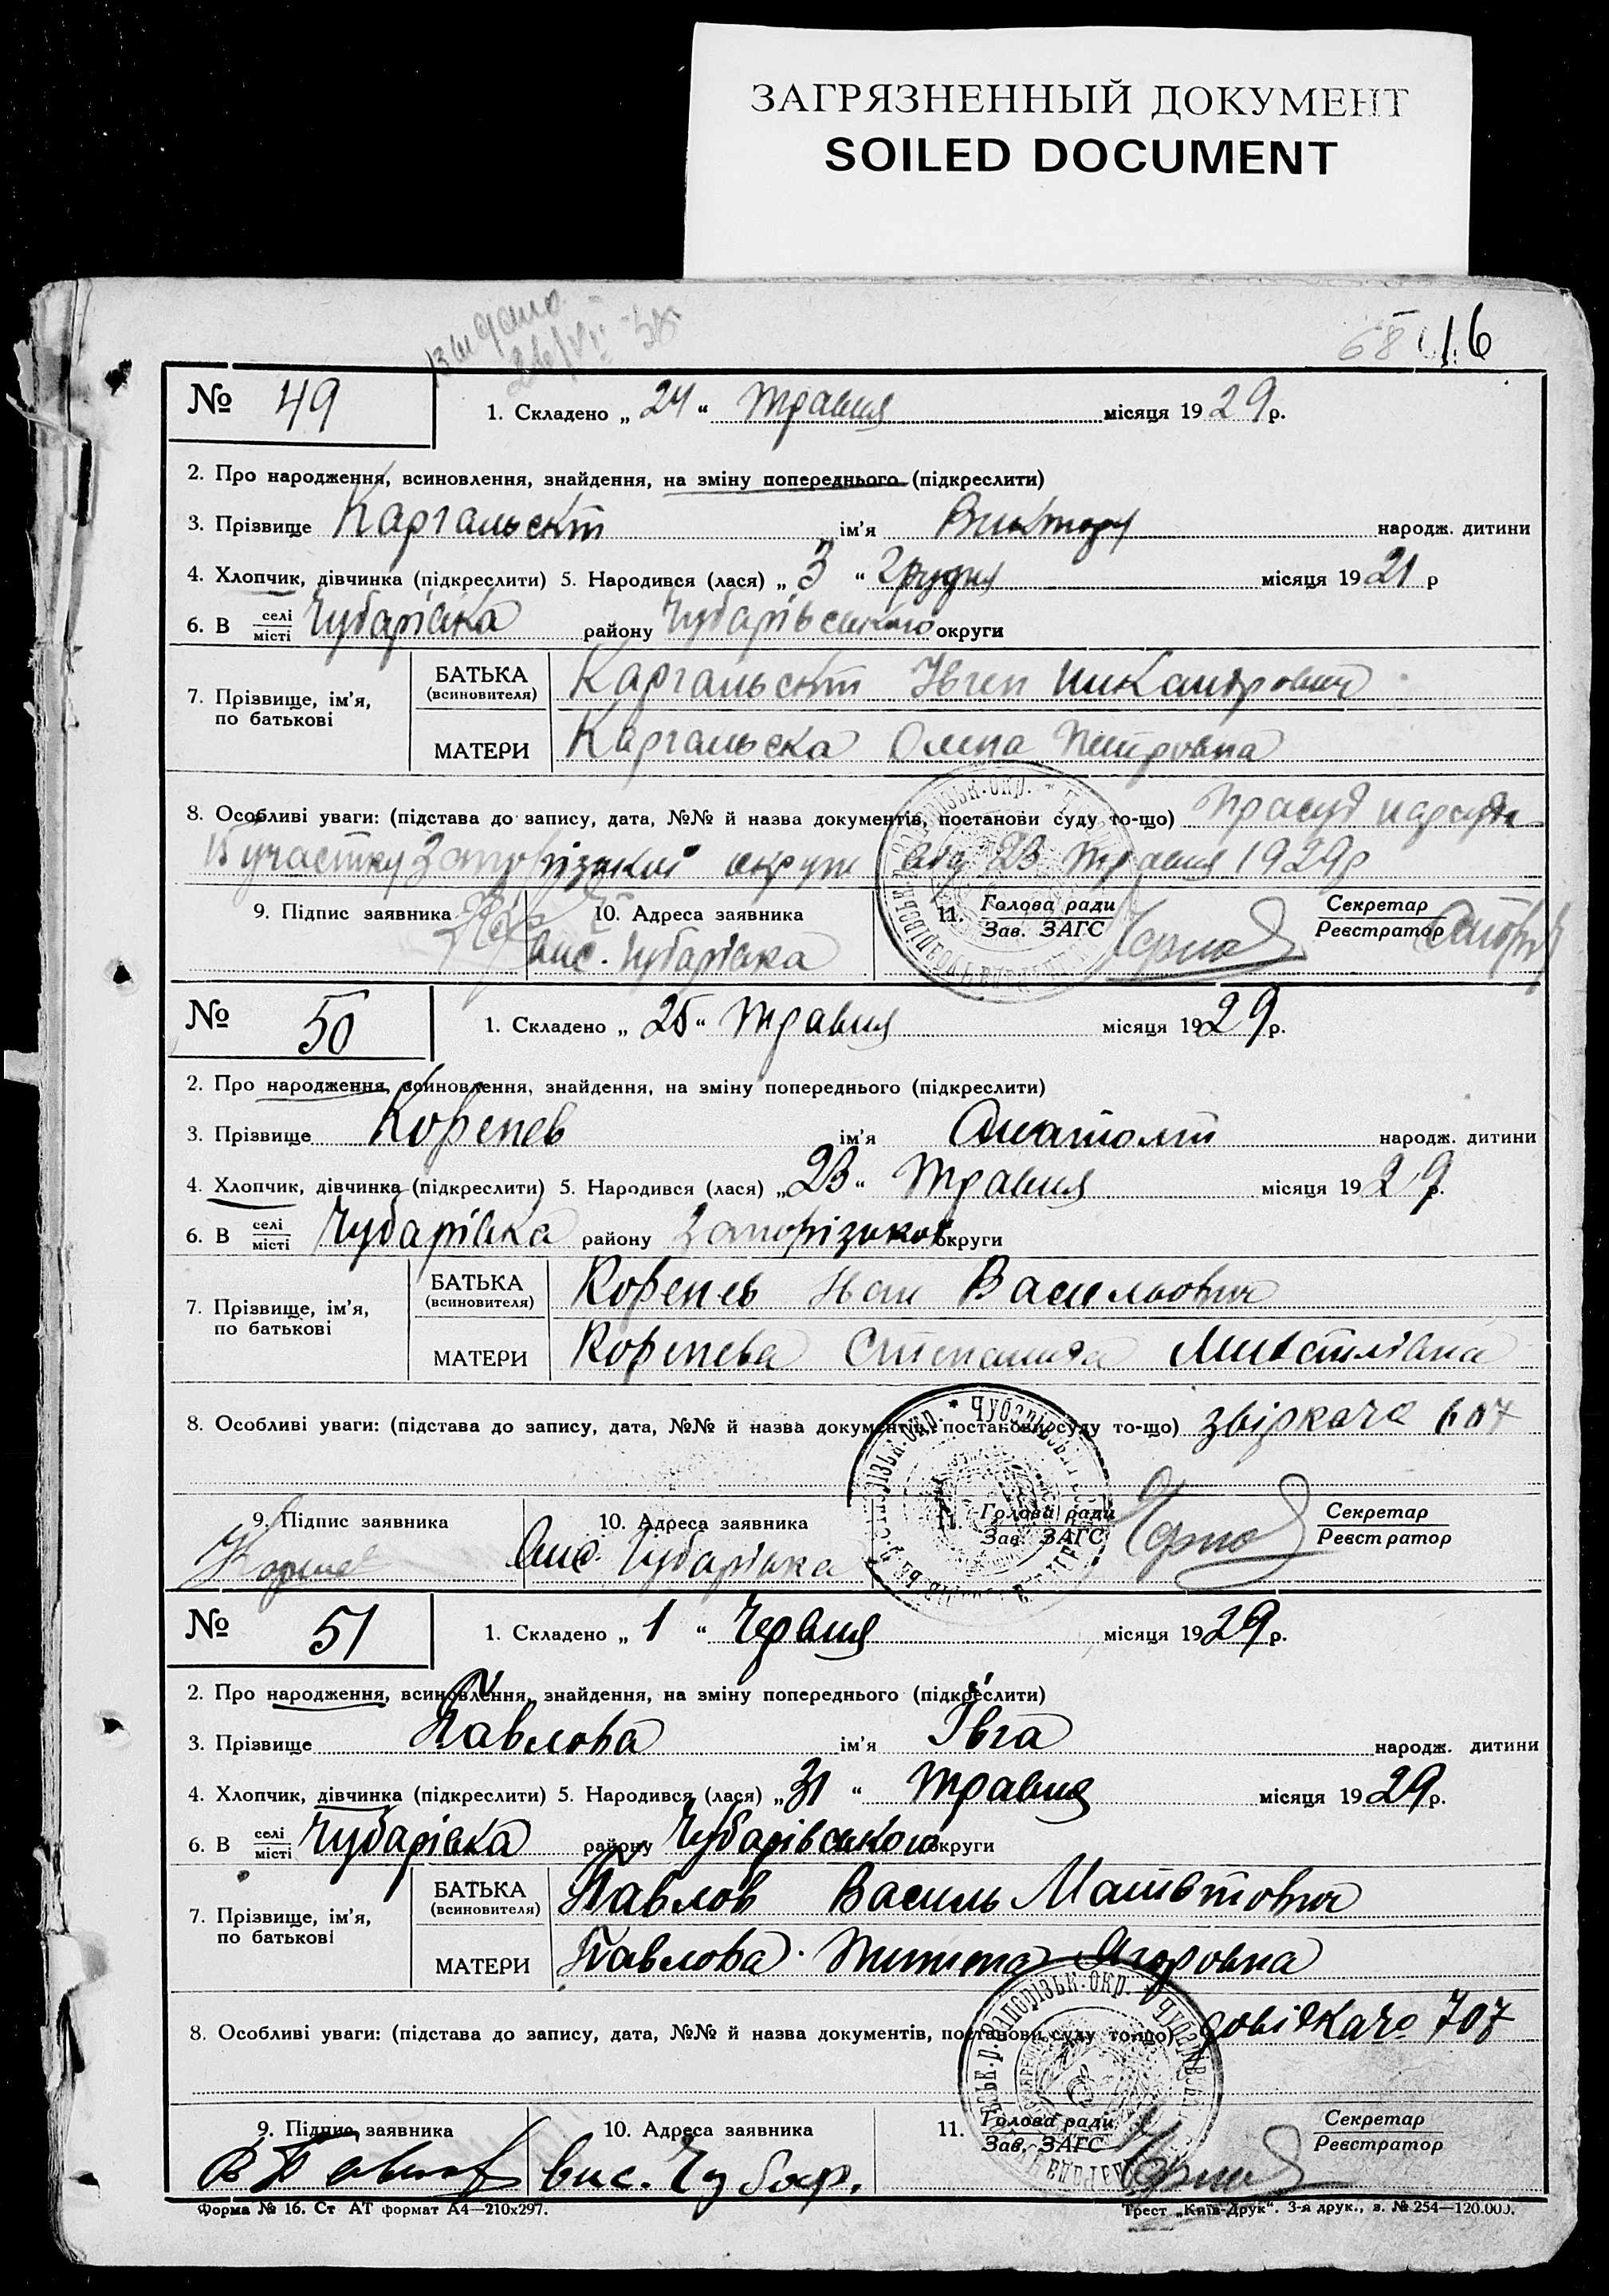 ЗАГРЯЗНЕННЫЙ ДОКУМЕНТ
SOILED DOCUMENT
видано
26/VII-38
68 16
№ 49
1. Складено „ 24 “ травня місяця 19 29 р.
2. Про народження, всиновлення, знайдення, на зміну попереднього (підкреслити)
3. Прізвище Каргальскт ім’я Виктор народж. дитини
4. Хлопчик, дівчинка (підкреслити) 5. Народився (лася) „ 3 “ грудня місяця 19 21 р
6. В селі/місті Чубарівка району Чубарівського округи
7. Прізвище, ім’я, по батькові
БАТЬКА (всиновителя) Каргальскт Івген Никандрович
МАТЕРИ Каргальска Олена Петровна
8. Особливі уваги: (підстава до запису, дата, №№ й назва документів, постанови суду то-що) Прасуд нарсуда
15 участку Запорізької округи від 23 травня 1929р
9. Підпис заявника
10. Адреса заявника вис. Чубарівка
11. Голова ради Зав. ЗАГС
Секретар Реєстратор
№ 50
1. Складено „ 25 “ травня місяця 19 29 р.
2. Про народження, всиновлення, знайдення, на зміну попереднього (підкреслити)
3. Прізвище Коренев ім’я Анатолт народж. дитини
4. Хлопчик, дівчинка (підкреслити) 5. Народився (лася) „ 23 “ травня місяця 19 29 р.
6. В селі/місті Чубарівка району Запорізької округи
7. Прізвище, ім’я, по батькові
БАТЬКА (всиновителя) Коренев Іван Васильович
МАТЕРИ Коренева Степанида
8. Особливі уваги: (підстава до запису, дата, №№ й назва документів, постанови суду то-що) 607
9. Підпис заявника Корнев
10. Адреса заявника вис. Чубарівка
11. Голова ради Зав. ЗАГС
Секретар Реєстратор
№ 51
1. Складено „ 1 “ червня місяця 19 29 р.
2. Про народження, всиновлення, знайдення, на зміну попереднього (підкреслити)
3. Прізвище Павлова ім’я Івга народж. дитини
4. Хлопчик, дівчинка (підкреслити) 5. Народився (лася) „ 31 “ травня місяця 19 29 р.
6. В селі/місті Чубарівка району Чубарівського округи
7. Прізвище, ім’я, по батькові
БАТЬКА (всиновителя) Павлов Василь Матвтович
МАТЕРИ Павлова Ягоровна
8. Особливі уваги: (підстава до запису, дата, №№ й назва документів, постанови суду то-що) довідкаче 707
9. Підпис заявника В Павлов
10. Адреса заявника вис. Чубар.
11. Голова ради Зав. ЗАГС
Секретар Реєстратор
Форма № 16. Ст АТ формат А4—210x297.
Трест „Київ-Друк“. 3-я друк., з. № 254—120.000.